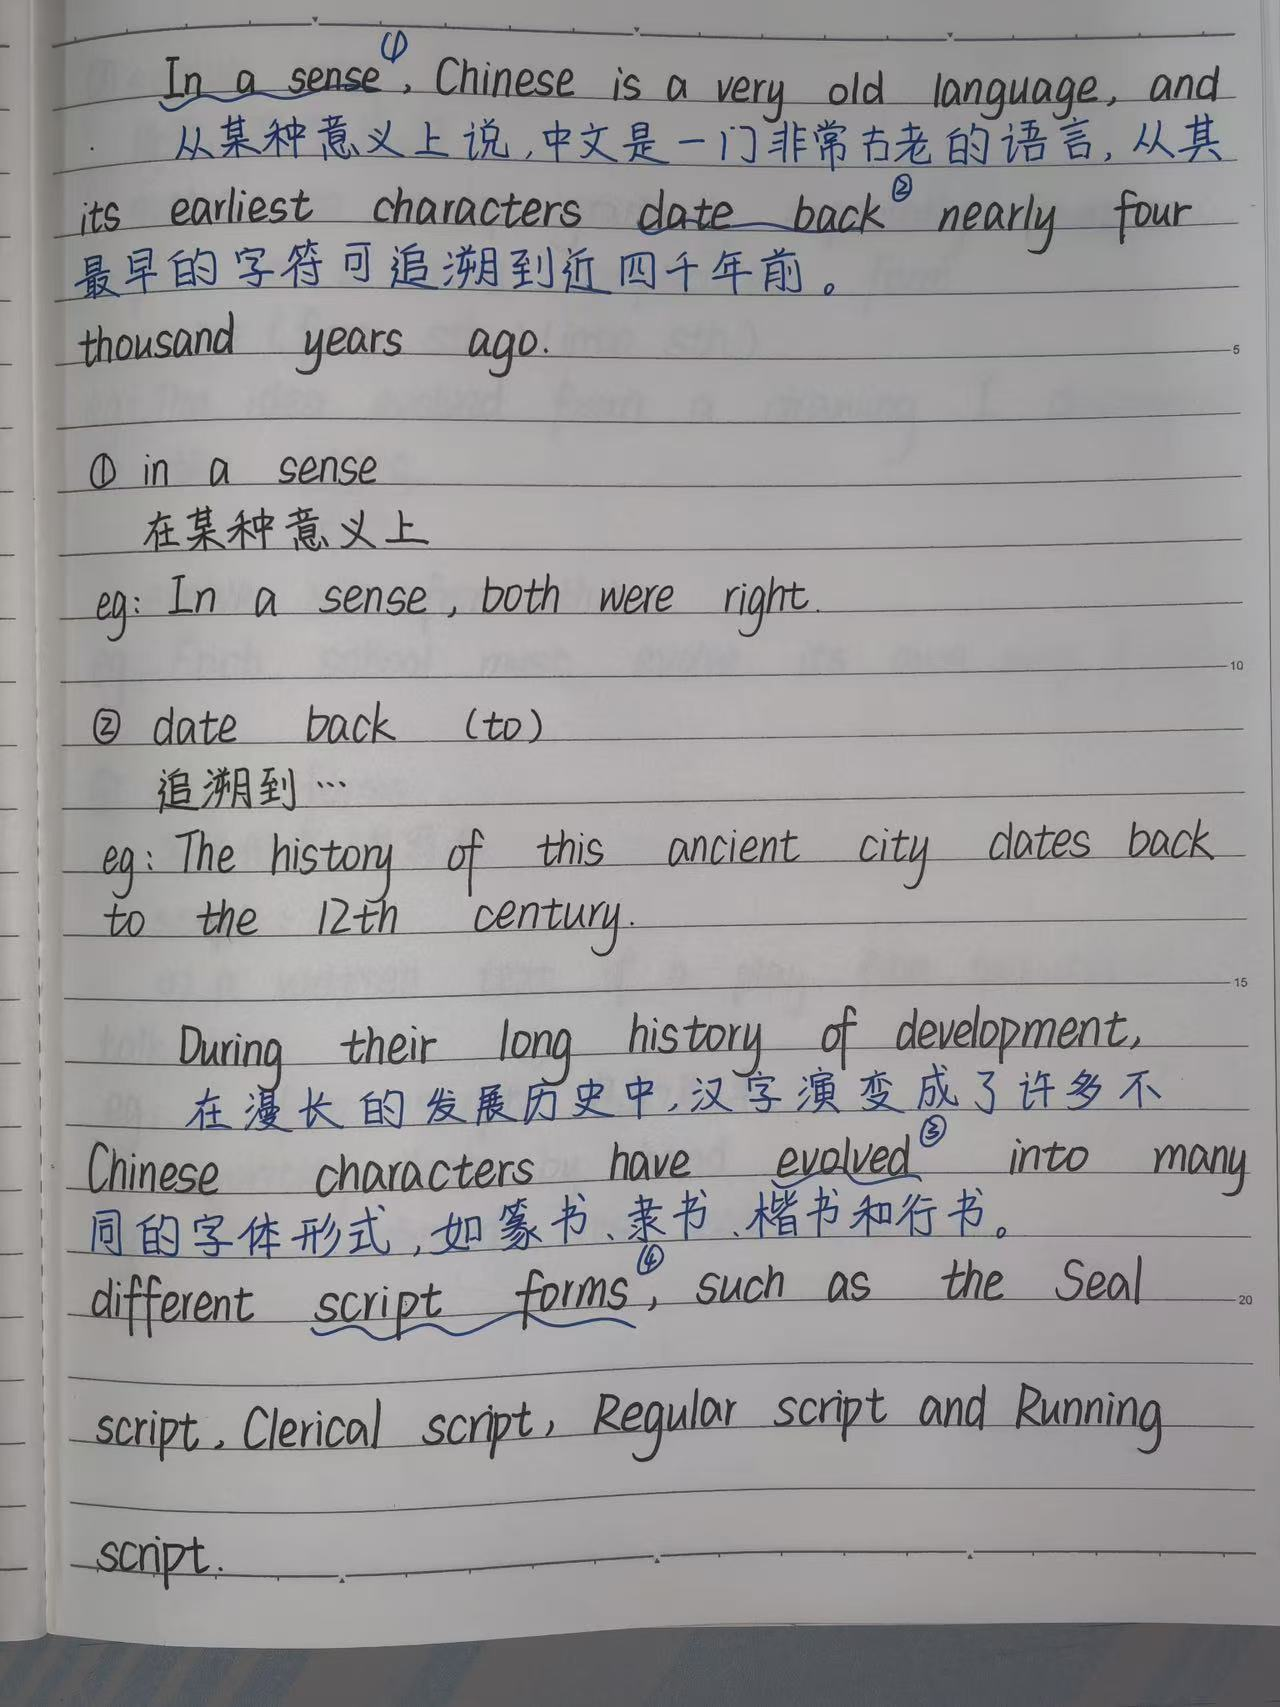 In a sense①, Chinese is a very old language, and
从某种意义上说,中文是一门非常古老的语言,从其
its earliest characters date back② nearly four
最早的字符可追溯到近四千年前。
thousand years ago.
5
① in a sense
在某种意义上
eg: In a sense, both were right.
10
② date back (to)
追溯到…
eg: The history of this ancient city dates back
to the 12th century.
15
During their long history of development,
在漫长的发展历史中,汉字演变成了许多不
Chinese characters have evolved③ into many
同的字体形式,如篆书、隶书、楷书和行书。
different script forms④, such as the Seal
20
script, Clerical script, Regular script and Running
script.